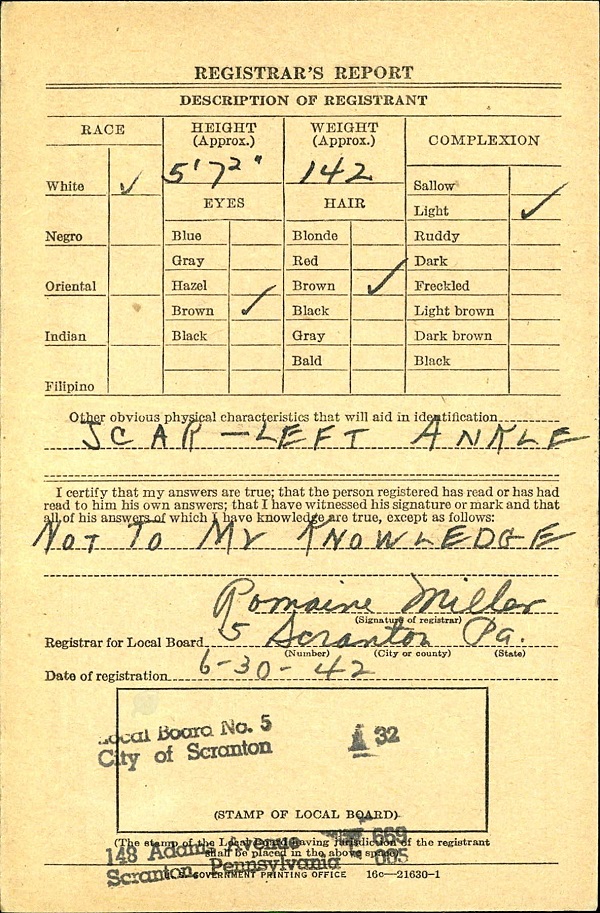 REGISTRAR'S REPORT
DESCRIPTION OF REGISTRANT
RACE
HEIGHT (Approx.)
WEIGHT (Approx.)
COMPLEXION
5'7 2"
142
White ✓
Negro
Oriental
Indian
Filipino
EYES
Blue
Gray
Hazel
Brown ✓
Black
HAIR
Blonde
Red
Brown ✓
Black
Gray
Bald
Sallow
Light ✓
Ruddy
Dark
Freckled
Light brown
Dark brown
Black
Other obvious physical characteristics that will aid in identification
SCAR — LEFT ANKLE
I certify that my answers are true; that the person registered has read or has had
read to him his own answers; that I have witnessed his signature or mark and that
all of his answers of which I have knowledge are true, except as follows:
NOT TO MY KNOWLEDGE
Romaine Miller
(Signature of registrar)
Registrar for Local Board 5 Scranton Pa.
(Number) (City or county) (State)
Date of registration 6-30-42
Local Board No. 5 32
City of Scranton
(STAMP OF LOCAL BOARD)
(The stamp of the Local Board having jurisdiction of the registrant
shall be placed in the above space)
148 Adams Avenue 669
Scranton, Pennsylvania 005
U. S. GOVERNMENT PRINTING OFFICE 16c—21630-1